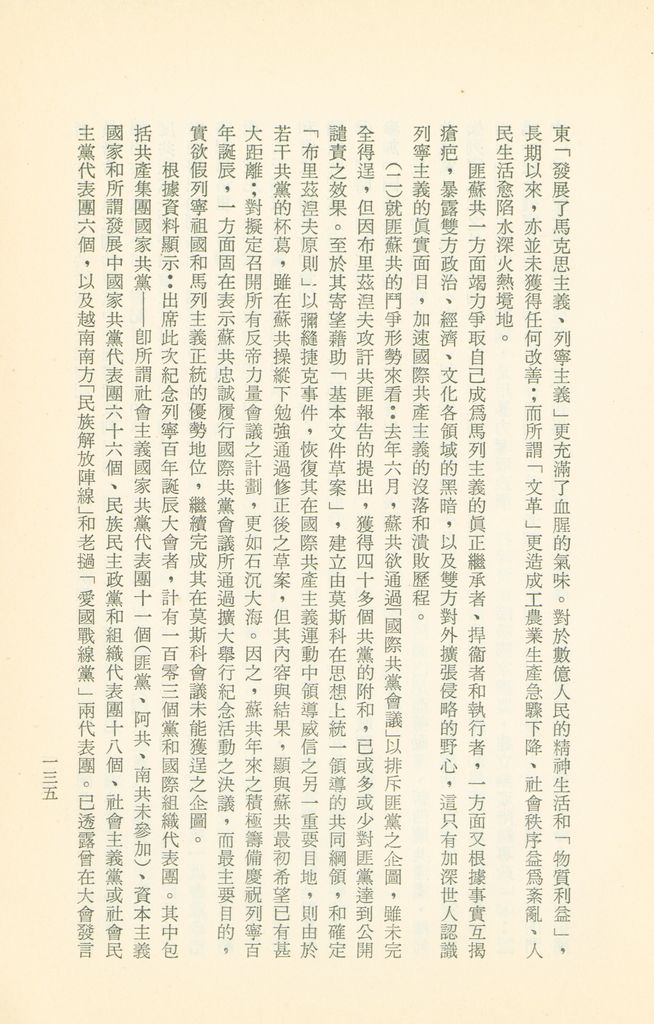 東「發展了馬克思主義、列寧主義」更充滿了血腥的氣味。對於數億人民的精神生活和「物質利益」，
長期以來，亦並未獲得任何改善；而所謂「文革」更造成工農業生產急驟下降、社會秩序益爲紊亂、人
民生活愈陷水深火熱境地。
匪蘇共一方面竭力爭取自己成爲馬列主義的眞正繼承者、捍衞者和執行者，一方面又根據事實互揭
瘡疤，暴露雙方政治、經濟、文化各領域的黑暗，以及雙方對外擴張侵略的野心，這只有加深世人認識
列寧主義的眞實面目，加速國際共產主義的沒落和潰敗歷程。
(二)就匪蘇共的鬥爭形勢來看：去年六月，蘇共欲通過「國際共黨會議」以排斥匪黨之企圖，雖未完
全得逞，但因布里茲湼夫攻訐共匪報告的提出，獲得四十多個共黨的附和，已或多或少對匪黨達到公開
譴責之效果。至於其寄望藉助「基本文件草案」，建立由莫斯科在思想上統一領導的共同綱領，和確定
「布里茲湼夫原則」以彌縫捷克事件，恢復其在國際共產主義運動中領導威信之另一重要目地，則由於
若干共黨的杯葛，雖在蘇共操縱下勉強通過修正後之草案，但其內容與結果，顯與蘇共最初希望已有甚
大距離；對擬定召開所有反帝力量會議之計劃，更如石沉大海。因之，蘇共年來之積極籌備慶祝列寧百
年誕辰，一方面固在表示蘇共忠誠履行國際共黨會議所通過擴大舉行紀念活動之決議，而最主要目的，
實欲假列寧祖國和馬列主義正統的優勢地位，繼續完成其在莫斯科會議未能獲逞之企圖。
根據資料顯示：出席此次紀念列寧百年誕辰大會者，計有一百零三個黨和國際組織代表團。其中包
括共產集團國家共黨——卽所謂社會主義國家共黨代表團十一個(匪黨、阿共、南共未參加)、資本主義
國家和所謂發展中國家共黨代表團六十六個、民族民主政黨和組織代表團十八個、社會主義黨或社會民
主黨代表團六個，以及越南南方「民族解放陣線」和老撾「愛國戰線黨」兩代表團。已透露曾在大會發言
一三五